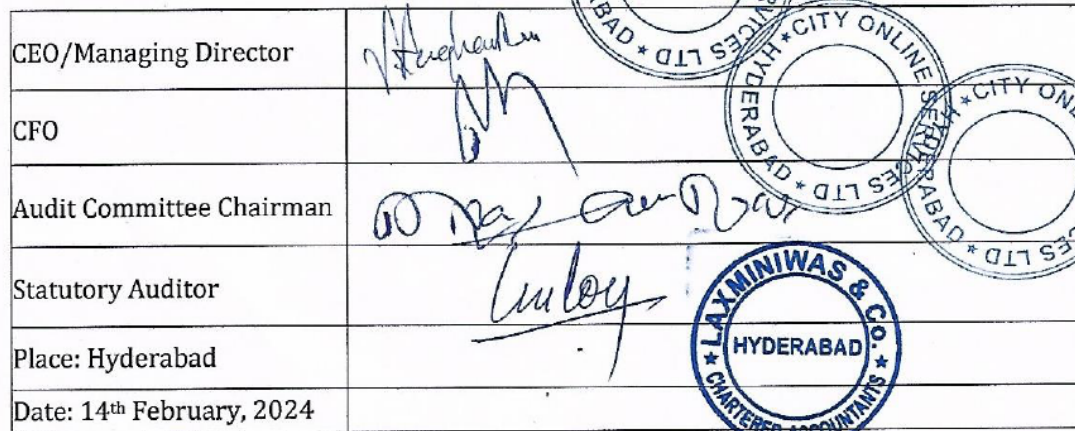 CEO/Managing Director
CFO
Audit Committee Chairman
Statutory Auditor
Place: Hyderabad
Date: 14th February, 2024
BAD * CITY ONLINE SERVICES LTD
* CITY ONLINE SERVICES LTD * HYDERABAD
* CITY ONLINE SERVICES LTD * HYDERABAD
LAXMINIWAS & Co.
HYDERABAD
* CHARTERED ACCOUNTANTS *